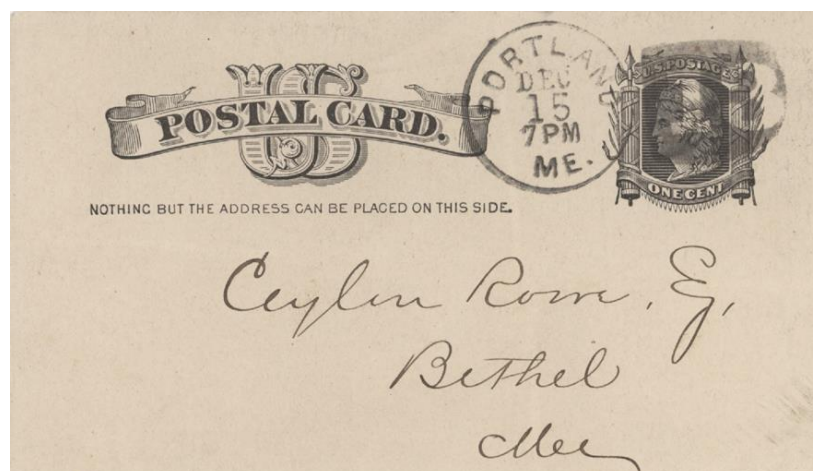 US
POSTAL CARD.
PORTLAND
DEC
15
7PM
ME.
U.S. POSTAGE
ONE CENT
NOTHING BUT THE ADDRESS CAN BE PLACED ON THIS SIDE.
Ceylon Rowe, Esq,
Bethel
Me